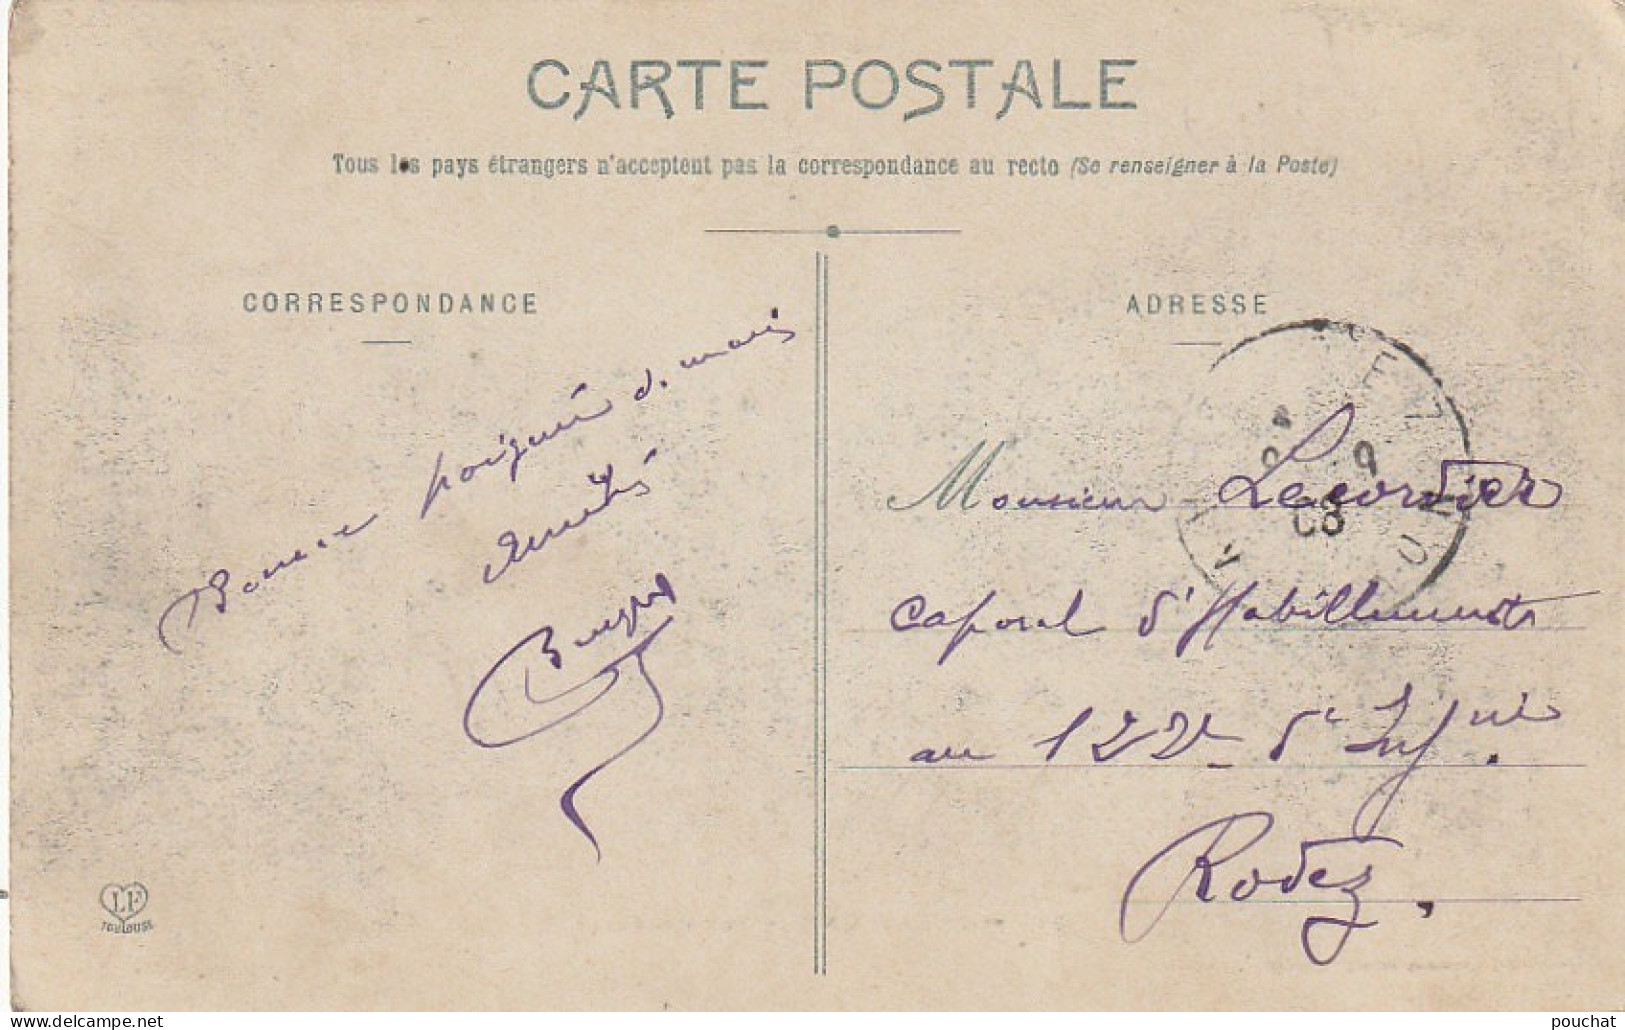 CARTE POSTALE
Tous les pays étrangers n'acceptent pas la correspondance au recto (Se renseigner à la Poste)
CORRESPONDANCE
Bonne poignée d. main
Amitiés
ADRESSE
Monsieur Lecordier
caporal d'Habillements
au 122e de Infrie
Rodez.
9
08
LF
TOULOUSE
www.delcampe.net
pouchat